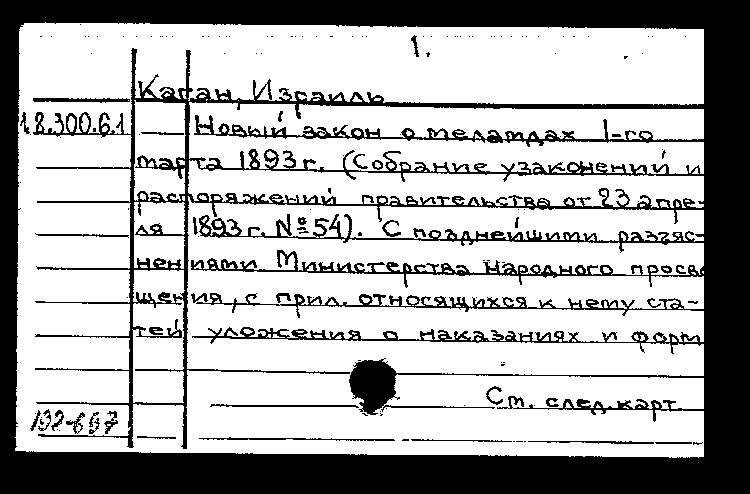 1.
Каган, Израиль
18.300.6.1 Новый закон о меламдах 1-го
марта 1893 г. (Собрание узаконений и
распоряжений правительства от 23 апре-
ля 1893 г. №54). С позднейшими разъяс-
нениями Министерства народного просве
щения, с прил. относящихся к нему ста-
тей уложения о наказаниях и форм
См. след. карт.
132-697